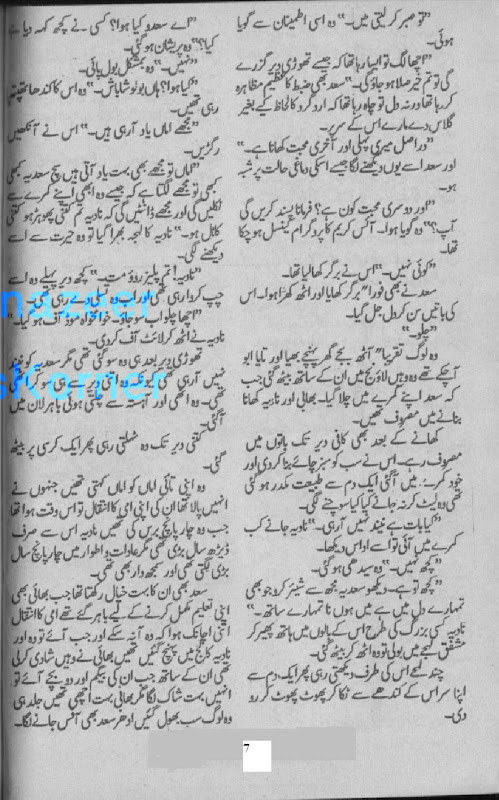 ”تو صبر کر لیتی میں۔“ وہ اسی اطمینان سے گویا
ہوئی۔
”اچھا لگ تو ایسا رہا تھا کہ جیسے تھوڑی دیر گزرے
گی تو تم خیر صلا ہو جاؤ گی۔“ سعد بھی ضبط کا عظیم مظاہرہ
کر رہا تھا ورنہ دل تو چاہ رہا تھا کہ ارد گرد کا لحاظ کیے بغیر
گلاس دے مارے اس کے سر پر۔
”دراصل میری پہلی اور آخری محبت کھانا ہے۔“
اور سعد اسے یوں دیکھنے لگا جیسے اسکی دماغی حالت پر شبہ
ہو۔
”اور دوسری محبت کون ہے؟ فرمانا پسند کریں گی
آپ؟“ وہ گویا ہوا۔ آئس کریم کا پروگرام کینسل ہو چکا
تھا۔
”کوئی نہیں۔“ اس نے برگر کھا لیا تھا۔
سعد نے بھی فوراً برگر کھایا اور اٹھ کھڑا ہوا۔ اس
کی باتیں سن کر دل جل گیا۔
”چلو۔“
وہ لوگ تقریباً آٹھ بجے گھر پہنچے بھیا اور تایا ابو
آ چکے تھے وہ وہیں لاؤنج میں ان کے ساتھ بیٹھ گئی جب
کہ سعد اپنے کمرے میں چلا گیا۔ بھابی اور نادیہ کھانا
بنانے میں مصروف تھیں۔
کھانے کے بعد بھی کافی دیر تک باتوں میں
مصروف رہے۔ اس نے سب کو سبز چائے بنا کر دی اور
خود کمرے میں آ گئی ایک دم سے طبیعت مکدر ہو گئی
تھی وہ لیٹ کر نہ جانے کیا کیا سوچنے لگی۔
”کیا بات ہے نیند نہیں آ رہی۔“ نادیہ جانے کب
کمرے میں آئی تو اسے اداس دیکھا۔
”کچھ نہیں۔“ وہ سیدھی ہو گئی۔
”کچھ تو ہے۔ دیکھو سعدیہ مجھ سے شیئر کرو جو بھی
تمہارے دل میں ہے میں ہوں نا تمہارے ساتھ۔“
نادیہ کسی بزرگ کی طرح اس کے بالوں میں ہاتھ پھیر کر
مشفق لہجے میں بولی تو وہ اٹھ کر بیٹھ گئی۔
چند لمحے اس کی طرف دیکھتی رہی پھر ایک دم سے
اپنا سر اس کے کندھے سے ٹکا کر پھوٹ پھوٹ کر رو
دی۔
”اے سعدو کیا ہوا؟ کسی نے کچھ کہہ دیا ہے
کیا؟“ وہ پریشان ہو گئی۔
”نہیں۔“ وہ بمشکل بول پائی۔
”کیا ہوا؟ ہاں بولو شاباش۔“ وہ اس کا کندھا تھپتھپا
رہی تھیں۔
”مجھے اماں یاد آ رہی ہیں۔“ اس نے آنکھیں
رگڑیں۔
”اماں تو مجھے بھی بہت یاد آتی ہیں سچ سعدیہ کبھی
کبھی تو مجھے لگتا ہے کہ جیسے وہ ابھی اپنے کمرے سے
نکلیں گی اور مجھے ڈانٹیں گی کہ نادیہ تم کتنی پھوہڑ ہو کتنی
کاہل ہو۔“ نادیہ کا لہجہ بھرا گیا تو وہ حیرت سے اسے
دیکھنے لگی۔
”نادیہ! تم پلیز روؤ مت۔“ کچھ دیر پہلے وہ اسے
چپ کروا رہی تھی اور اب وہ تسلی دے رہی تھی۔
”اچھا چلو اب سو جاؤ۔ خوامخواہ موڈ آف ہو گیا۔“
نادیہ نے اٹھ کر لائٹ آف کر دی۔
تھوڑی دیر بعد ہی وہ سو گئی تھی مگر سعدیہ کو نیند
نہیں آ رہی تھی کیونکہ وہ اتنی دیر سے ہی سو کر اٹھی
تھی۔ وہ اٹھی اور آہستہ سے چلتی ہوئی باہر لان میں
آ گئی۔
کتنی دیر تک وہ ٹہلتی رہی پھر ایک کرسی پر بیٹھ
گئی۔
وہ اپنی تائی اماں کو اماں کہتی تھیں جنہوں نے
انہیں پالا تھا ان کی اپنی امی کا انتقال تو اس وقت ہوا تھا
جب وہ چار پانچ برس کی تھیں نادیہ اس سے صرف
ڈیڑھ سال بڑی تھی مگر عادات و اطوار میں چار پانچ سال
بڑی لگتی تھی اور سمجھ دار بھی تھی۔
سعد بھی ان کا بہت خیال رکھتا تھا جب بھائی بھی
اپنی تعلیم مکمل کرنے کے لیے باہر گئے تھے امی کا انتقال
اتنی اچانک ہوا کہ وہ آ نہ سکے اور جب آئے تو وہ اور
نادیہ کالج میں پہنچ گئیں تھیں بھائی نے وہیں شادی کر لی
تھی ان کے ساتھ جب ان کی بیگم اور دو بچے آئے تو
انہیں بہت شاک لگا مگر بھابی بہت اچھی تھیں جلد ہی
وہ لوگ سب بھول گئیں ادھر سعد بھی آفس جانے لگا۔
nazeer
sKorner
7